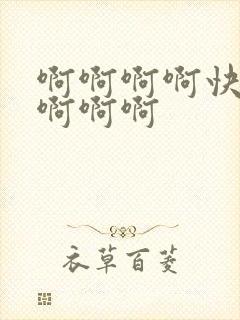 啊啊啊啊快
啊啊啊
衣草百菱